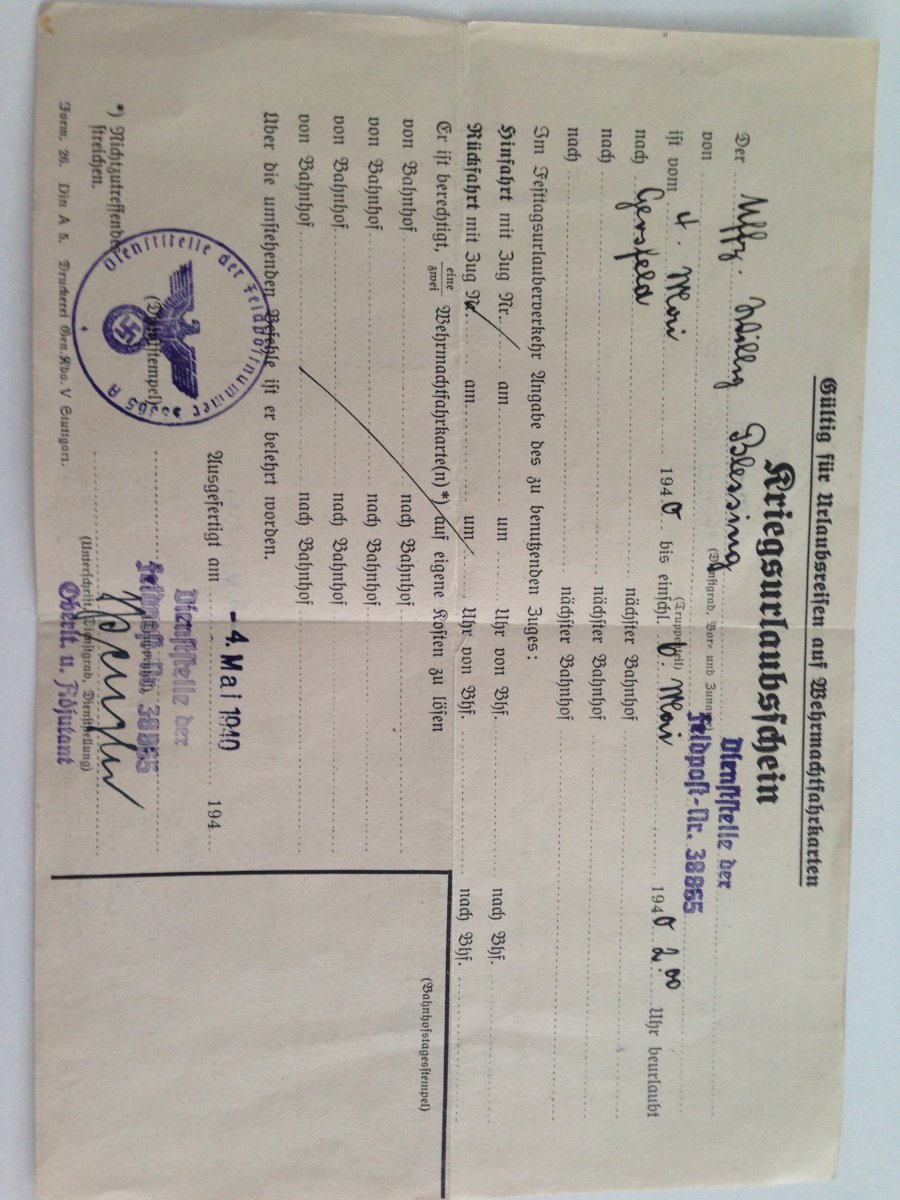 Gültig für Urlaubsreisen auf Wehrmachtfahrkarten
Kriegsurlaubsschein
Dienststelle der
Der Uffz. Willy Blessing
(Dienstgrad, Vor- und Zuname)
Feldpost-Nr. 38865
von
(Truppenteil)
ist vom 4. Mai 1940 bis einschl. 6. Mai 1940 2.00 Uhr beurlaubt
nach Gersfeld nächster Bahnhof
nach nächster Bahnhof
nach nächster Bahnhof
Im Festtagsurlauberverkehr Angabe des zu benutzenden Zuges:
Hinfahrt mit Zug Nr. am um Uhr von Bhf. nach Bhf.
Rückfahrt mit Zug Nr. am um Uhr von Bhf. nach Bhf.
Er ist berechtigt, eine/zwei Wehrmachtfahrkarte(n) *) auf eigene Kosten zu lösen
(Bahnhofstagesstempel)
von Bahnhof nach Bahnhof
von Bahnhof nach Bahnhof
von Bahnhof nach Bahnhof
von Bahnhof nach Bahnhof
Über die umstehenden Befehle ist er belehrt worden.
Ausgefertigt am - 4. Mai 1940 194
Dienststelle der
Feldpost-Nr. 38865
Dienststelle der Feldpostnummer 38865 A
(Dienststempel)
(Unterschrift, Dienstgrad, Dienststellung)
Oberlt. u. Adjutant
*) Nichtzutreffendes
streichen.
Form. 26. Din A 5. Druckerei Gen Kdo. V Stuttgart.